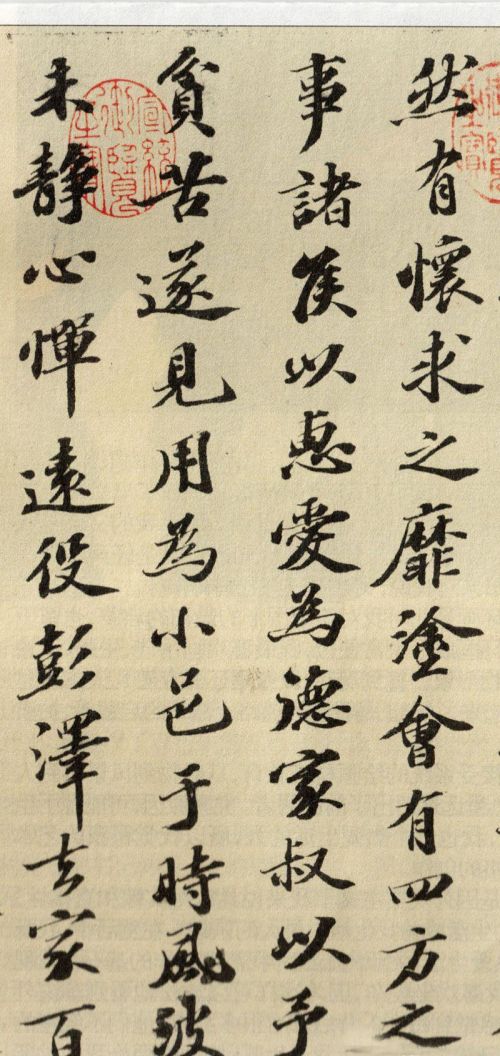 然有懷求之靡塗會有四方之
事諸侯以惠愛為德家叔以予
貧苦遂見用為小邑于時風波
未靜心憚遠役彭澤去家百
宣統御覽之寶